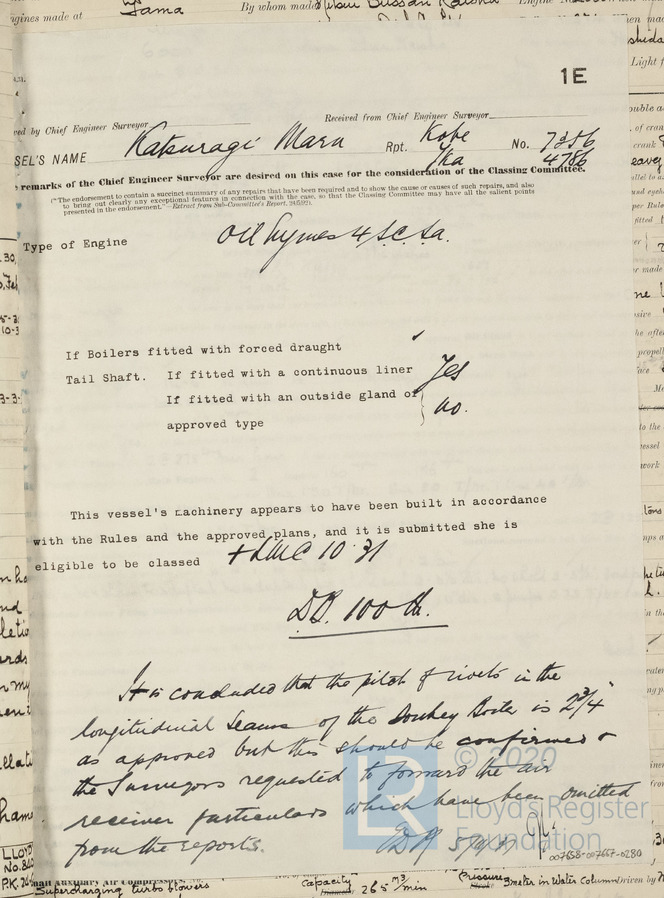 gines made at Tama By whom made
1E
ved by Chief Engineer Surveyor Received from Chief Engineer Surveyor
SEL'S NAME Katsuragi Maru Rpt. Kobe No. 7356
Yka 4786
remarks of the Chief Engineer Surveyor are desired on this case for the consideration of the Classing Committee.
(*The endorsement to contain a succinct summary of any repairs that have been required and to show the cause or causes of such repairs, and also
to bring out clearly any exceptional features in connection with the case, so that the Classing Committee may have all the salient points
presented in the endorsement."—Extract from Sub-Committee's Report,
Type of Engine Oil Engines 4 S.C.S.a.
If Boilers fitted with forced draught
Tail Shaft. If fitted with a continuous liner Yes
If fitted with an outside gland of
approved type no.
This vessel's machinery appears to have been built in accordance
with the Rules and the approved plans, and it is submitted she is
eligible to be classed +LMC 10.31
D.B. 100 lb.
It is concluded that the pitch of rivets in the
longitudinal seams of the Donkey Boiler is 2 3/4"
as approved but this should be confirmed &
the Surveyors requested to forward the air
receiver particulars which have been omitted
from the reports.
© 2020
LR
Lloyd's Register
Foundation
007658-007667-0280
LLOYD
Supercharging turbo blowers Capacity 265 m3/min Pressure 3 meter in Water Column Driven by